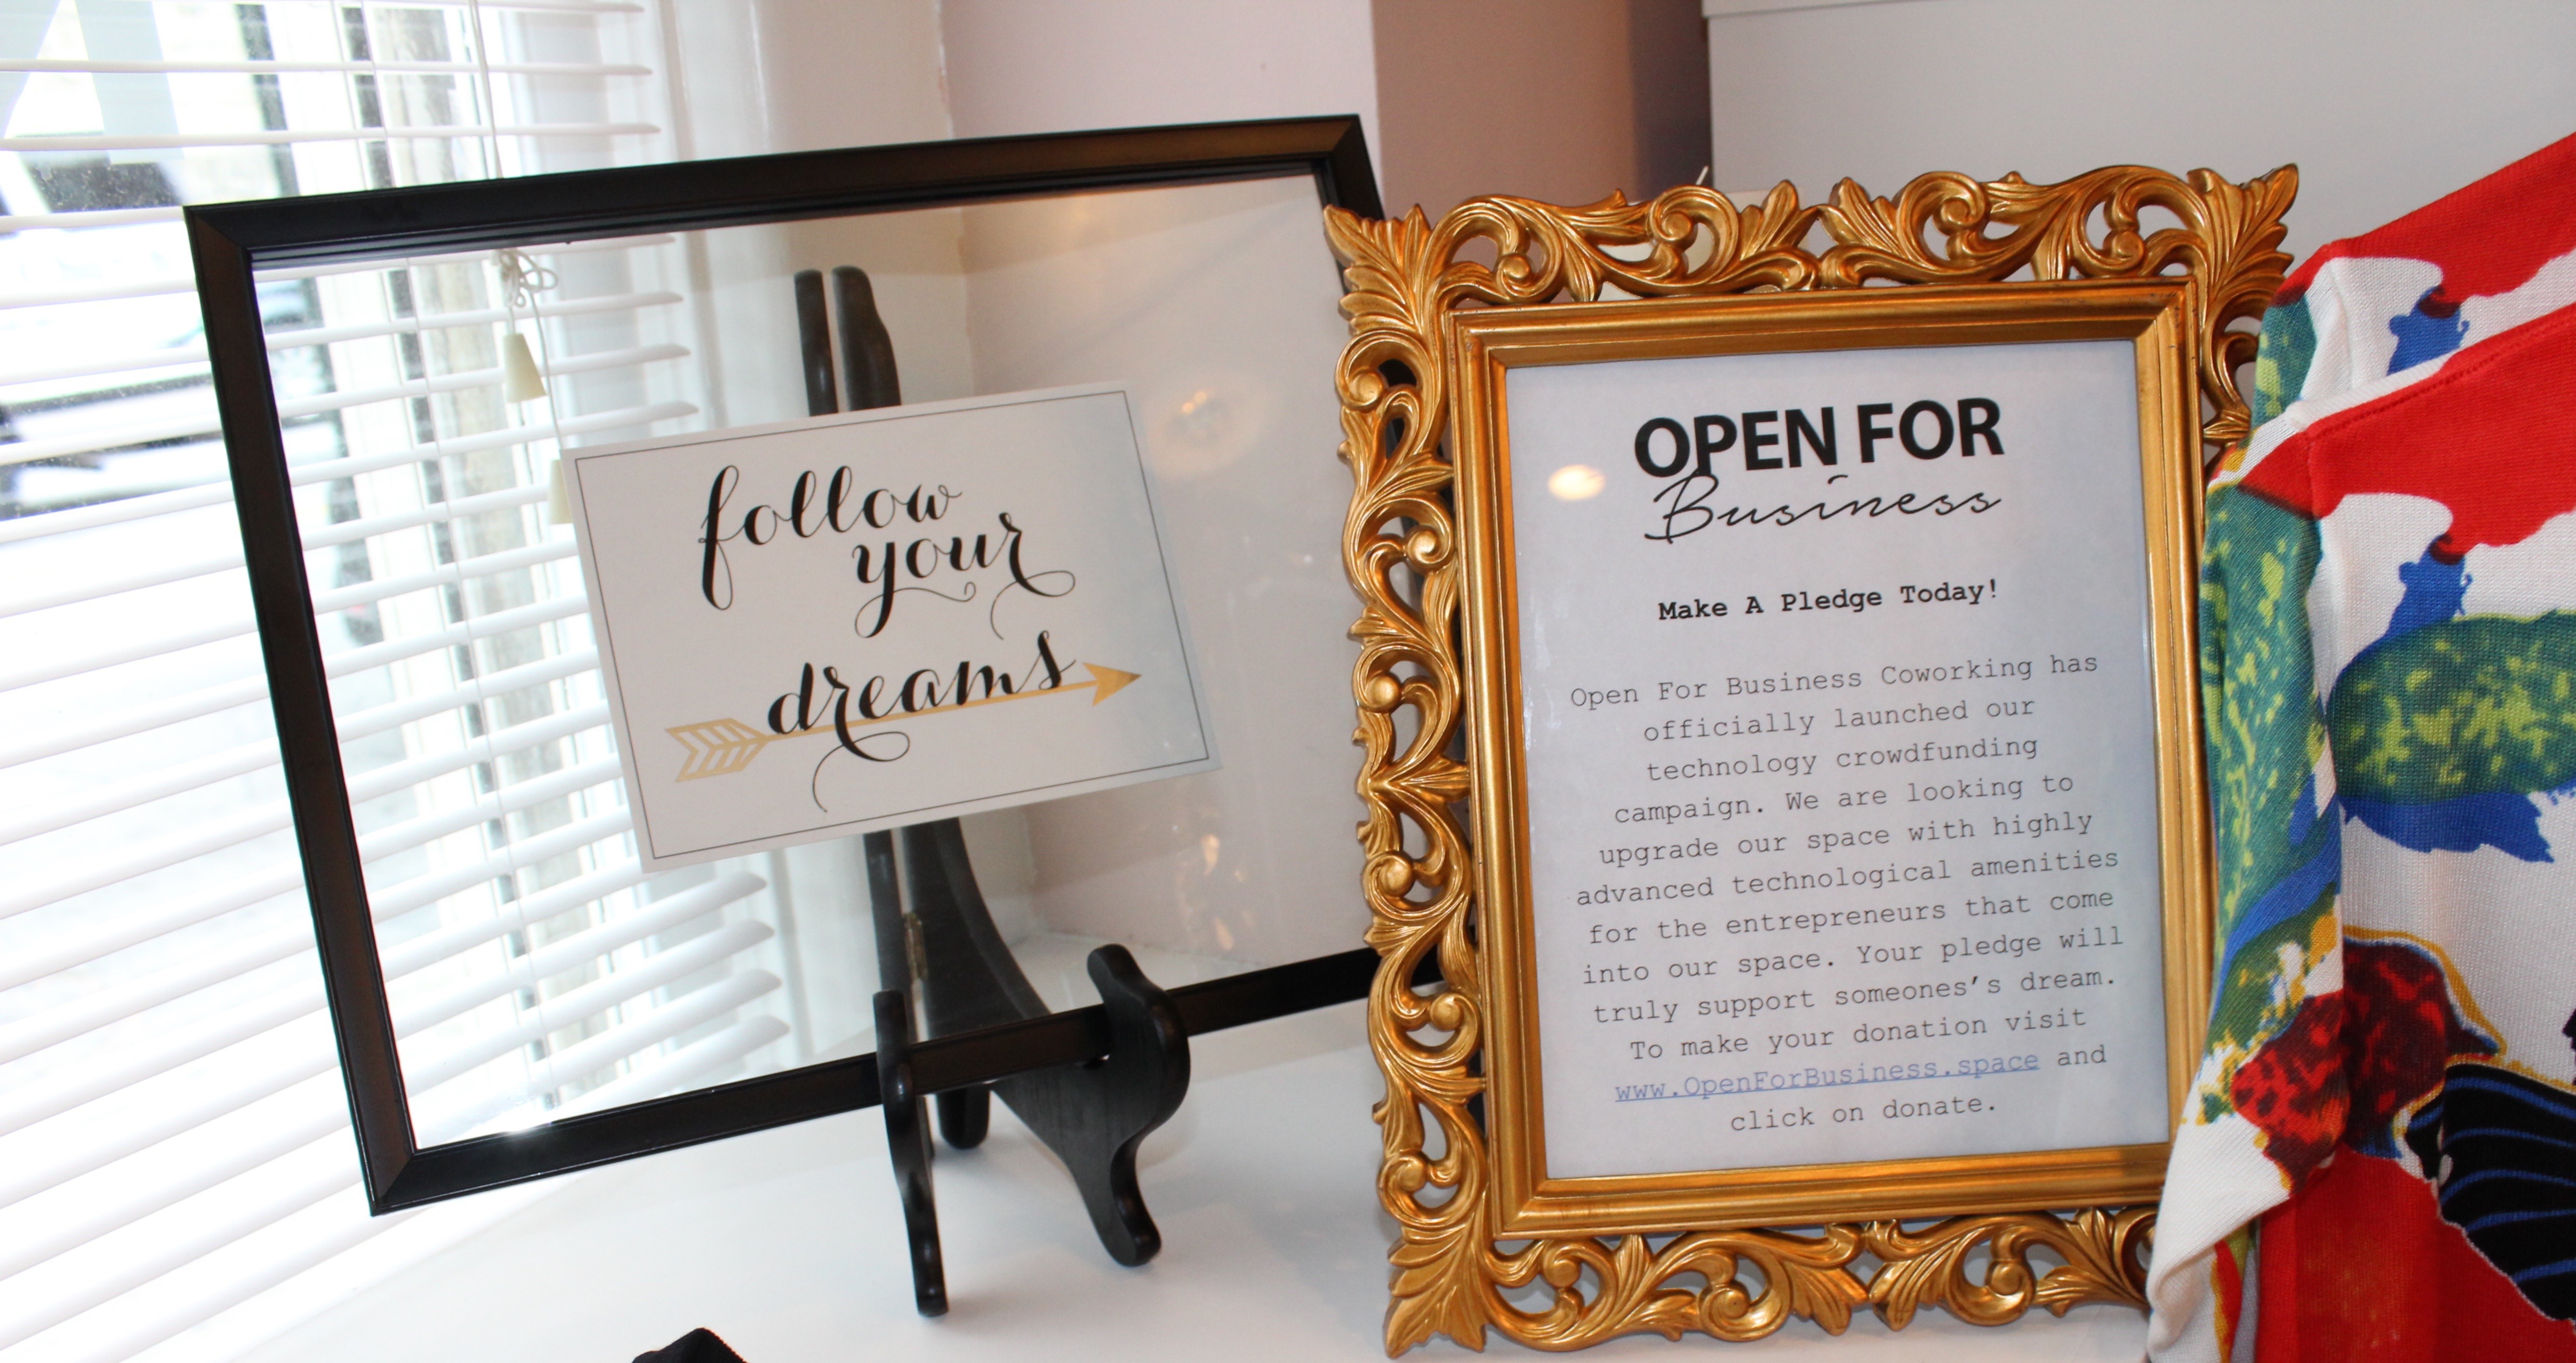 follow
your
dreams
OPEN FOR
Business
Make A Pledge Today!
Open For Business Coworking has
officially launched our
technology crowdfunding
campaign. We are looking to
upgrade our space with highly
advanced technological amenities
for the entrepreneurs that come
into our space. Your pledge will
truly support someones’s dream.
To make your donation visit
www.OpenForBusiness.space and
click on donate.